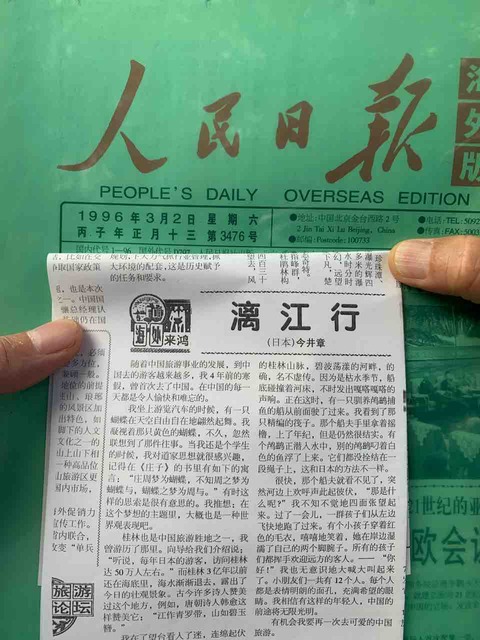 人民日报
海外版
PEOPLE'S DAILY OVERSEAS EDITION
1996年3月2日 星期六
丙子年正月十三 第3476号
●地址:中国北京金台西路2号
2 Jin Tai Xi Lu Beijing, China
●邮编:Postcode:100733
●电话:TEL:5092
●传真:FAX:5003
国内代号1—96
争取国家政策
大环境的配套,这是历史赋予
的任务和要求。
海外来鸿
漓江行
(日本)今井章
随着中国旅游事业的发展,到中
国去的游客越来越多,我4年前的寒
假,曾首次去了中国。在中国的每一
天都是令人愉快和难忘的。
我坐上游览汽车的时候,有一只
蝴蝶在天空自由自在地翩然起舞。我
凝视着那只黄色的蝴蝶,不久,忽然
联想到了那件往事。当我还是个学生
的时候,我对道家思想就很感兴趣,
记得在《庄子》的书里有如下的寓
言:“庄周梦为蝴蝶,不知周之梦为
蝴蝶与,蝴蝶之梦为周与。”有时这
样的思索是很有意思的。我推想:在
这个梦想的主题里,大概也是一种世
界观表现吧。
桂林也是中国旅游胜地之一,我
曾游历了那里。向导给我们介绍说:
“听说,每年日本的游客,访问桂林
达50万人左右。”而桂林3亿年以前
还在海底里,海水渐渐退去,露出了
今日的壮观景象。古今许多诗人赞美
过这个地方,例如,唐朝诗人韩愈这
样赞美:“江作青罗带,山如碧玉
簪。”
我在了望台看入了迷,连绵起伏
的桂林山脉,碧波荡漾的河畔,的
确,名不虚传。因为是枯水季节,船
底碰撞着河床,不时发出嘎喀嘎喀的
声响。正在这时,有一只驯养鸬鹚捕
鱼的船从前面驶过了来。我看到了那
只精编的筏子。那个船夫手里拿着摇
橹,上了年纪,但是仍然很结实。有
个鸬鹚正潜入水中,别的鸬鹚叼着白
色的鱼浮了上来。它们都没拴结在一
段绳子上,这和日本的方法不一样。
很快,那个船夫就看不见了,突
然河边上欢呼声此起彼伏,“那是什
么呢?”我不知不觉地四面张望起
来。过了一会儿,一群孩子们从左边
飞快地跑了过来。有个小孩子穿着红
色的毛衣,嘻嘻地笑着,她在岸边湿
濡了自己的两个脚腕子。所有的孩子
们都挥手欢迎远方的客人。——“你
好!”我也无意识地大喊大叫起来
了。小朋友们一共有12个人。每个人
都是表情明朗的面孔,充满着希望的
眼睛。我相信有这样的年轻人,中国的
前途将无限光明。
有机会我要再一次去可爱的中国
旅游。
旅游论坛
21世纪的亚
欧会议